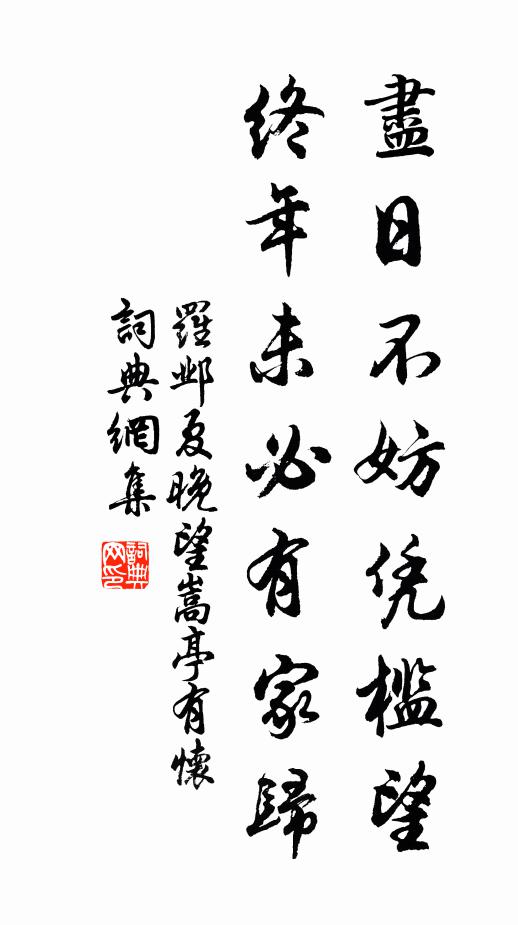 盡日不妨凭檻望
終年未必有家歸
羅邺夏晚望嵩亭有懷
詞典網集
詞典网印